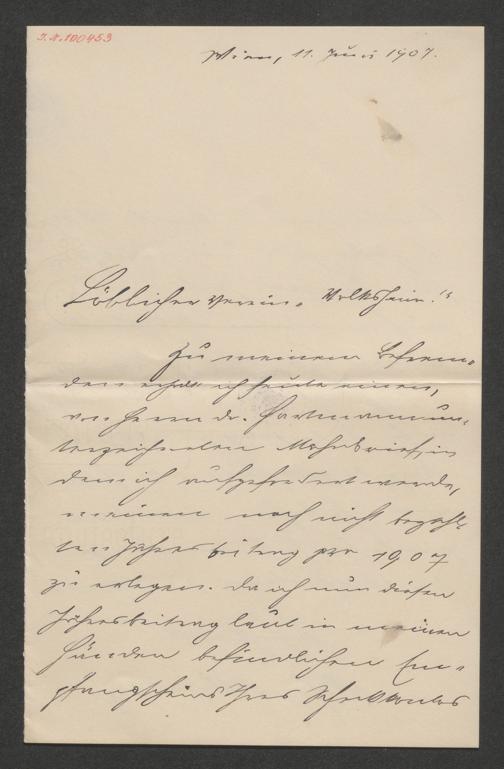 J.N. 100453
Wien, 11. Juni 1907.
Löblicher Verein „Volksheim“!
Zu meinem Befrem-
den erhalte ich heute einen,
von Herrn Dr. Hartmann un-
terzeichneten Mahnbrief, in
dem ich aufgefordert werde,
meinen noch nicht bezahl-
ten Jahresbeitrag pro 1907
zu erlegen. Da ich nun diesen
Jahresbeitrag laut in meinen
Händen befindlichen Em-
pfangscheins Ihres Scheckkontos